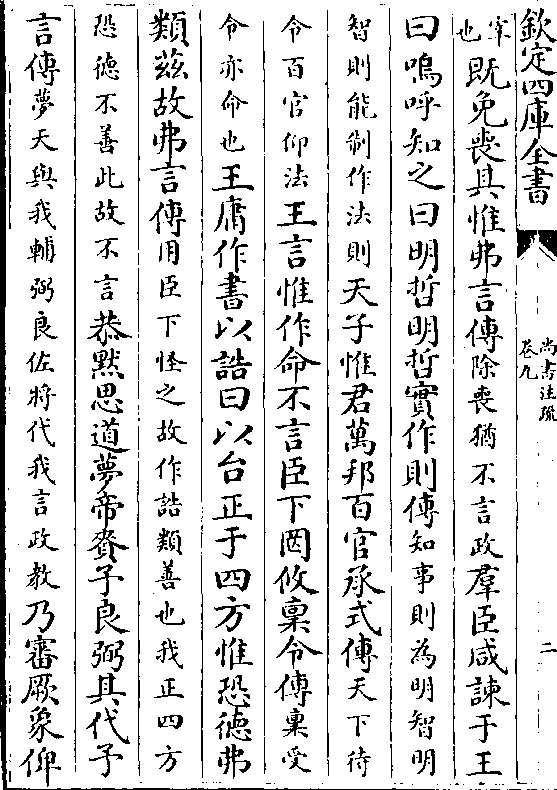 欽定四庫全書
尚書注疏
卷九
二
宰
也既免喪其惟弗言傳除喪猶不言政羣臣咸諫于王
曰嗚呼知之曰明哲明哲實作則傳知事則為明智明
智則能制作法則天子惟君萬邦百官承式傳天下待
令百官仰法王言惟作命不言臣下罔攸稟令傳稟受
令亦命也王庸作書以誥曰以台正于四方惟恐德弗
類茲故弗言傳用臣下怪之故作誥類善也我正四方
恐德不善此故不言恭黙思道夢帝賚予良弼其代予
言傳夢天與我輔弼良佐將代我言政教乃審厥象俾